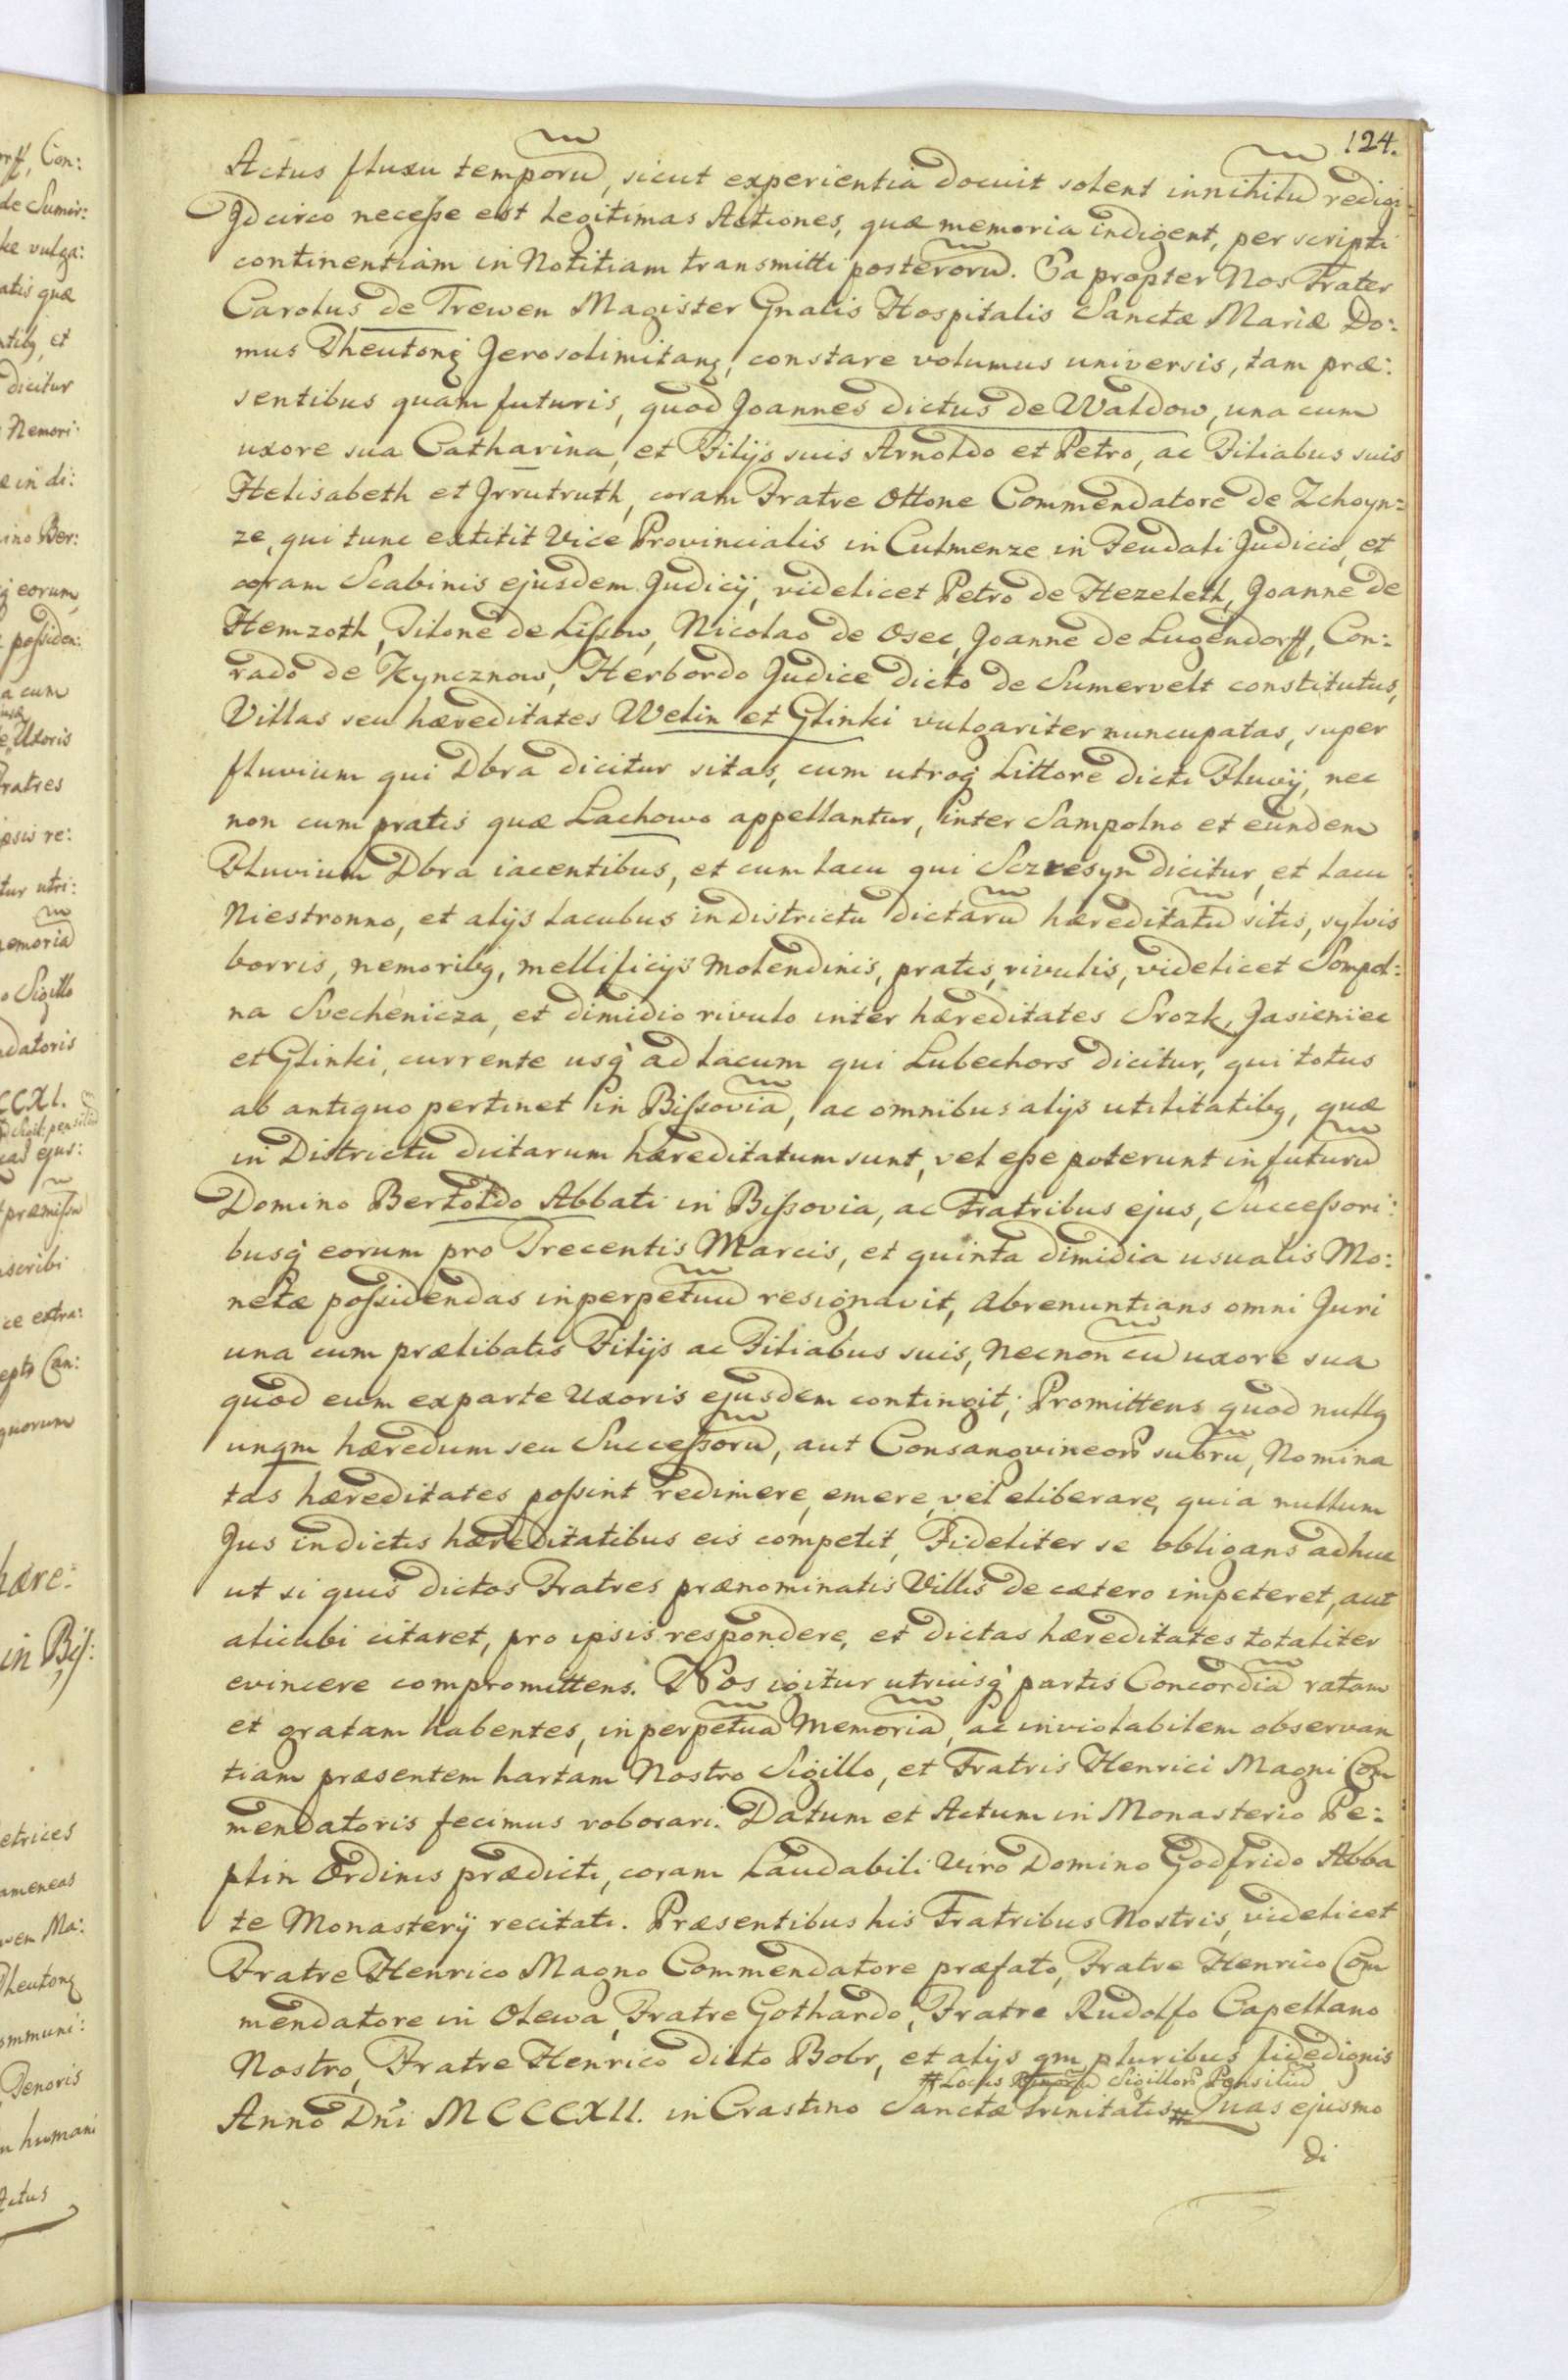 124.
Actus fluxu temporũ, sicut experientia docuit solent in nihilũ redigi
Idcirco necesse est Legitimas Actiones, quæ memoria indigent, per scripti
continentiam in Notitiam transmitti posterorũ. Ea propter Nos Frater
Carolus de Trewen Magister Gnalis Hospitalis Sanctæ Mariæ Do:
mus Theutonę Jerosolimitanę, constare volumus universis, tam præ:
sentibus quam futuris, quod Joannes dictus de Waldow, una cum
uxore sua Catharina, et Filijs suis Arnoldo et Petro, ac Filiabus suis
Helisabeth et Jrrutruth, coram Fratre Ottone Commendatore de Zchoyn=
ze, qui tunc extitit Vice Provincialis in Culmenze in Feudali Judicio, et
coram Scabinis ejusdem Judicij, videlicet Petro de Hezeleth, Joanne de
Hemzoth, Tilone de Lissow, Nicolao de Osec, Joanne de Lugendorff, Con:
rado de Kyncznow, Herbordo Judice dicto de Sumervelt constitutus,
Villas seu hæreditates Welin et Glinki vulgariter nuncupatas, super
fluvium qui Dbra dicitur sitas, cum utroq Littore dicti Fluvij, nec
non cum pratis quæ Lachowo appellantur, inter Sampolno et eundem
Fluvium Dbra iacentibus, et cum lacu qui Sczresyn dicitur, et lacu
Niestronno, et alijs lacubus in districtu dictarũ hæreditatũ sitis, sylvis
borris, nemoribq, mellificijs molendinis, pratis, rivulis, videlicet Sompol:
na Svechenicza, et dimidio rivulo inter hæreditates Srozk, Jasieniec
et Glinki, currente usq ad lacum qui Lubechors dicitur, qui totus
ab antiquo pertinet in Bissoviã, ac omnibus alijs utilitatibq, quæ
in Districtu dictarum hæreditatum sunt, vel esse poterunt in futurũ
Domino Bertoldo Abbati in Bissovia, ac Fratribus ejus, Successori:
busq eorum pro Trecentis Marcis, et quinta dimidia usualis Mo:
netæ possidendas in perpetuũ resignavit, abrenuntians omni Juri
una cum prælibatis Filijs ac Filiabus suis, necnon cũ uxore sua
quod eum ex parte Uxoris ejusdem contingit; Promittens quod nullq
unqm hæredum seu Successorũ, aut Consangvineor̃ subrũ, Nomina
tas hæreditates possint redimere, emere, vel eliberare, quia nullum
Jus in dictis hæreditatibus eis competit, Fideliter se obligans adhuc
ut si quis dictos Fratres prænominatis Villis de cætero impeteret, aut
alicubi citaret, pro ipsis respondere, et dictas hæreditates totaliter
evincere compromittens. Nos igitur utriusq partis Concordiã ratam
et gratam habentes, in perpetuã Memoriã, ac inviolabilem observan
tiam præsentem hartam Nostro Sigillo, et Fratris Henrici Magni Com
mendatoris fecimus roborari. Datum et Actum in Monasterio Pe:
plin Ordinis prædicti, coram Laudabili Viro Domino Godfrido Abba
te Monasterij recitati. Præsentibus his Fratribus Nostris, videlicet
Fratre Henrico Magno Commendatore præfato, Fratre Henrico Com
mendatore in Olewa, Fratre Gothardo, Fratre Rudolfo Capellano
Nostro, Fratre Henrico dicto Bobr, et alijs qm pluribus fidedignis
# Locus Sigillor̃ Pensiliũ
Anno Dni MCCCXII. in Crastino Sanctæ trinitatis # Quas ejusmo
di